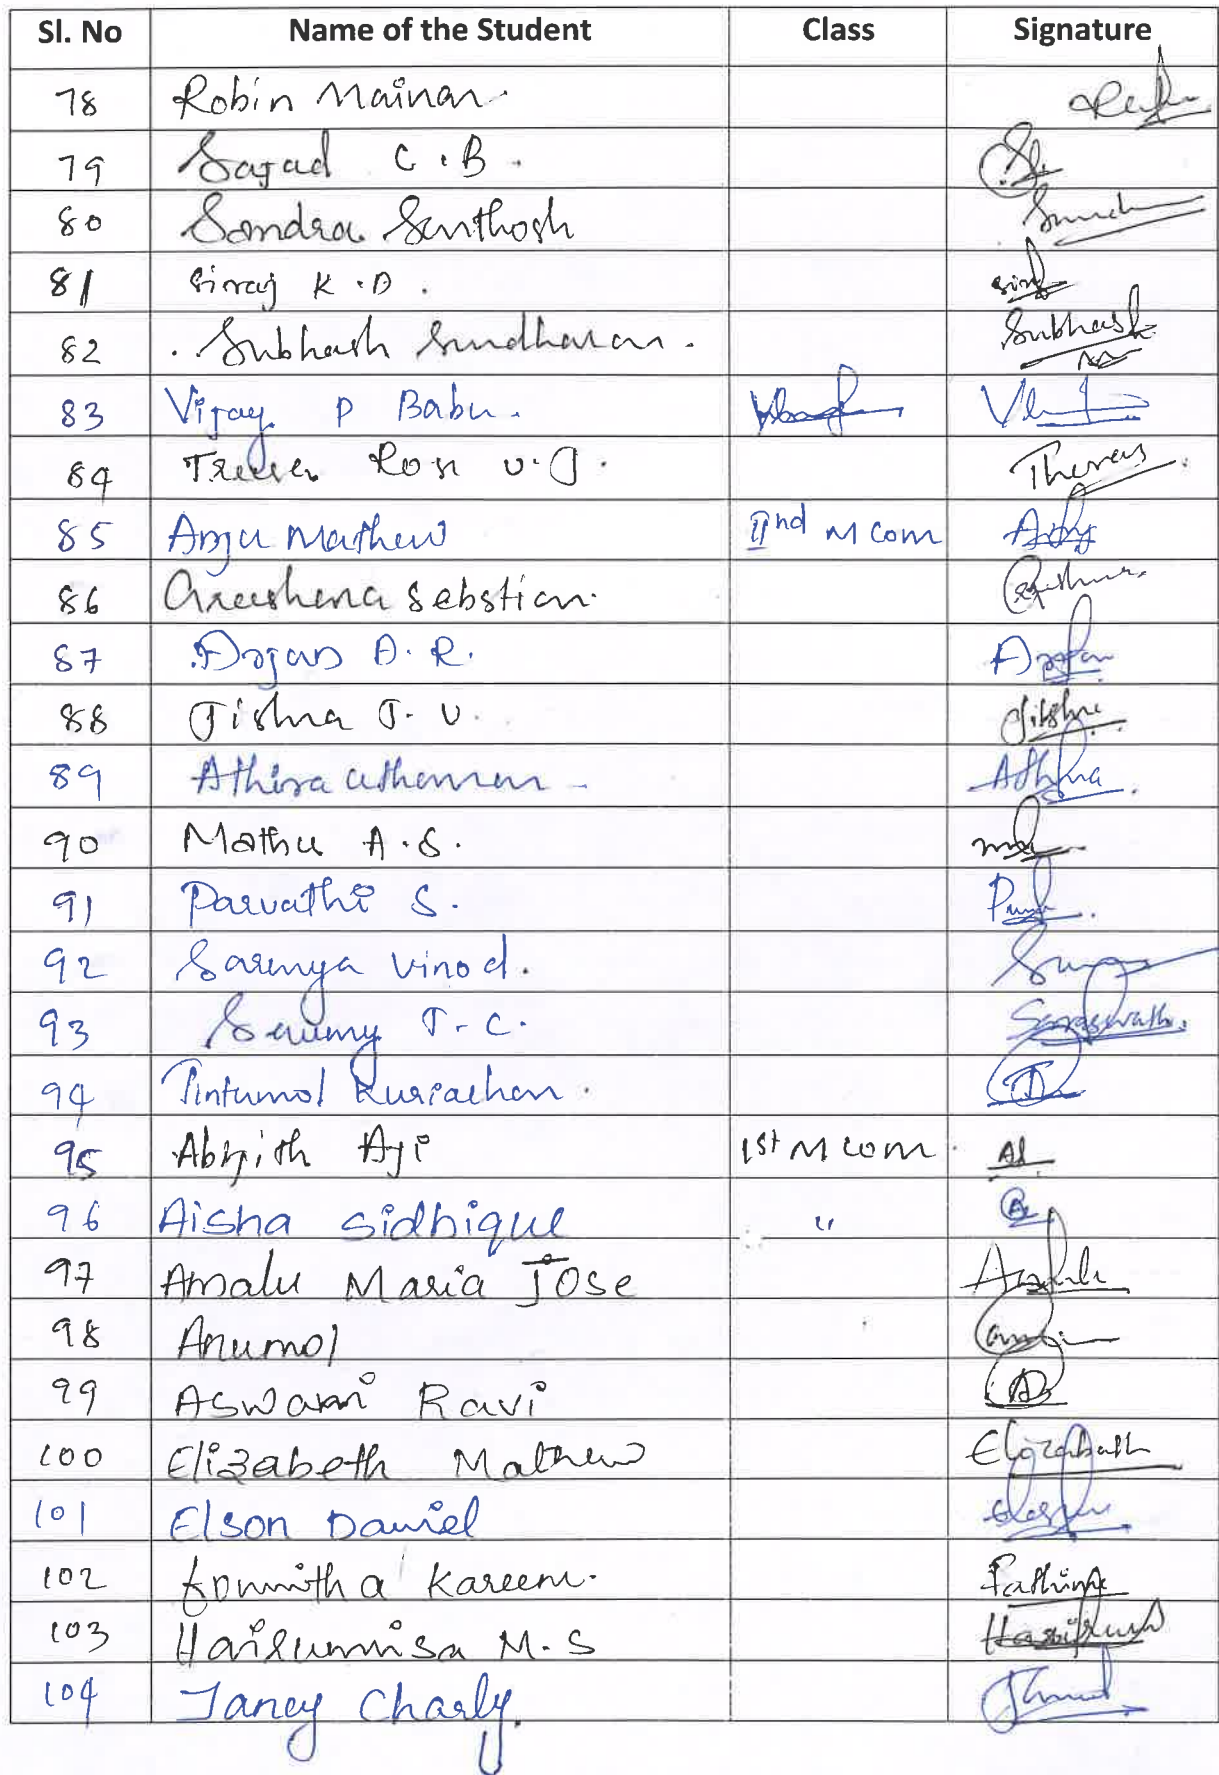 Sl. No Name of the Student Class Signature
78 Robin Mainan.
79 Sajad C.B.
80 Sandra Santhosh
81 Siraj K.D.
82 Subhash Sundharan. Subhash
83 Vijay P Babu.
84 Rose V.J.
85 Anju Mathew IInd M Com
86 Sebstian.
87 A.R.
88 Jishna T.V.
89 Athira Athira
90 Mathu A.S.
91 Parvathi S.
92 Saranya Vinod.
93 T.C.
94 Tintumol Kuriachan.
95 Abhijith Aji 1st M Com
96 Aisha Sidhique "
97 Amalu Maria Jose
98 Anumol
99 Aswani Ravi
100 Elizabeth Mathew Elizabath
101 Elson Daniel
102 Kareem. Fathima
103 Hairunnisa M.S
104 Janey Charly.